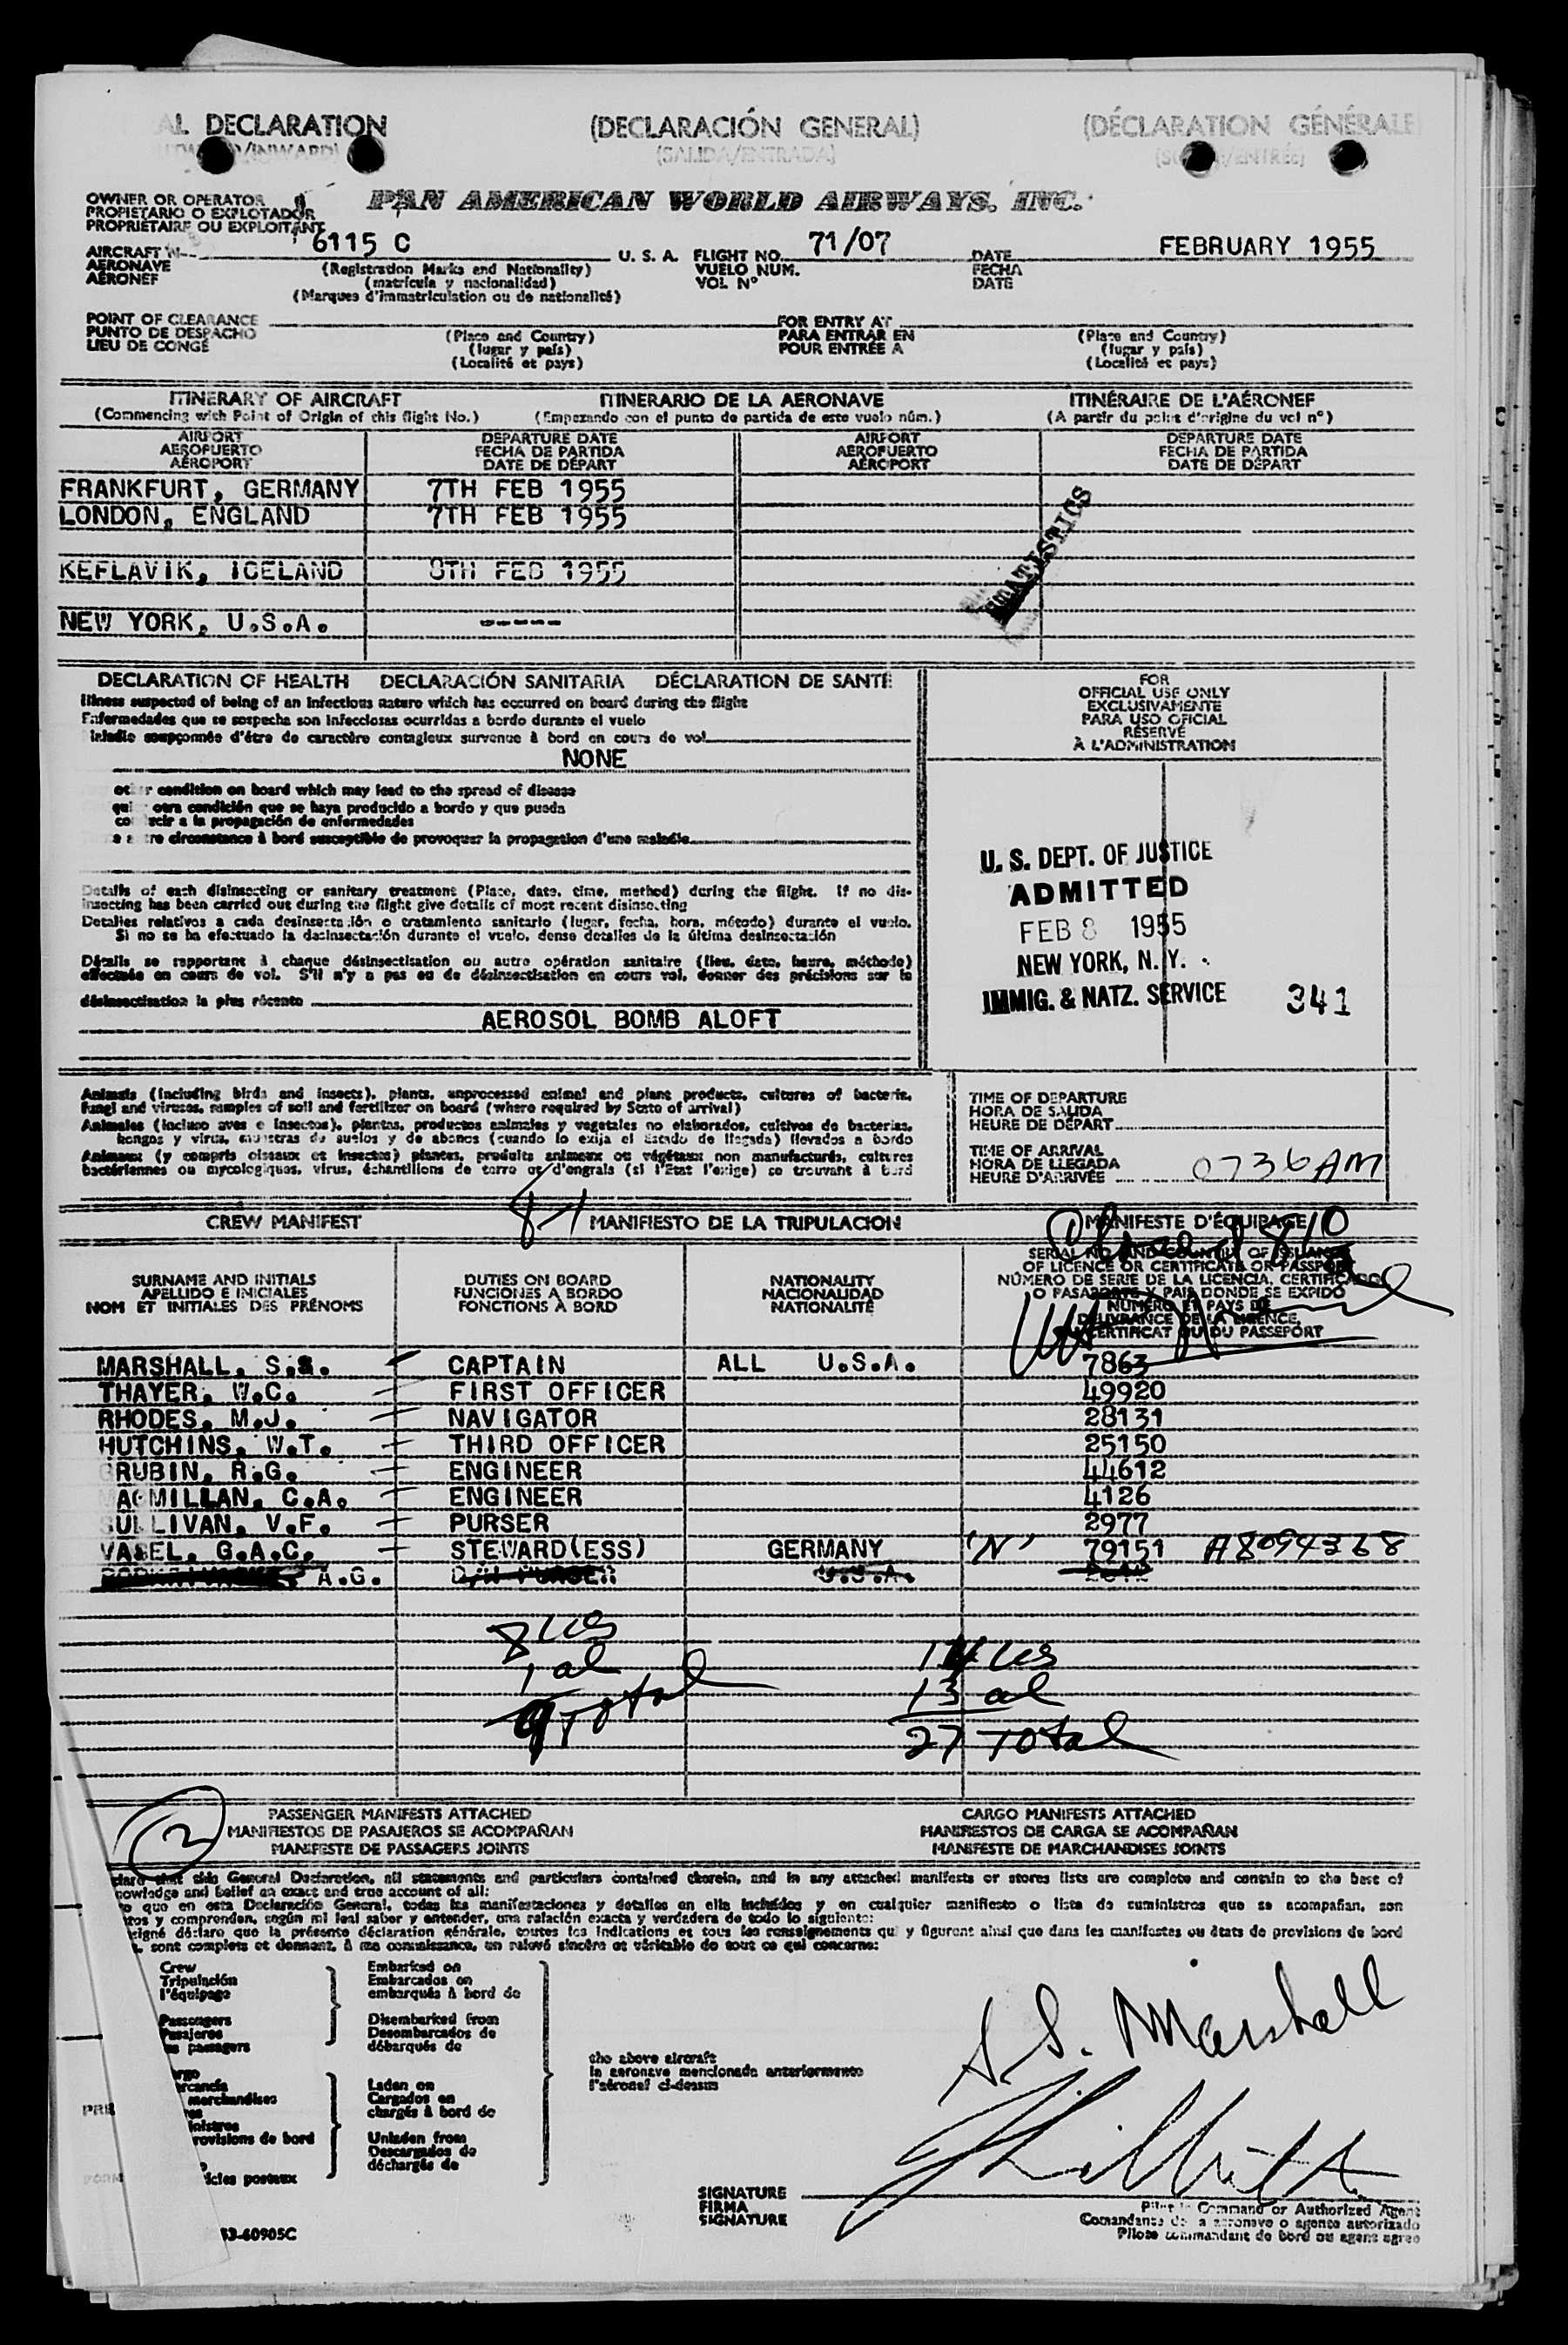 AL DECLARATION (DECLARACIÓN GENERAL) (DÉCLARATION GÉNÉRALE
/INWARD) (SALIDA/ENTRADA) /ENTRÉE)
OWNER OR OPERATOR
PROPIETARIO O EXPLOTADOR
PROPRIÉTAIRE OU EXPLOITANT
PAN AMERICAN WORLD AIRWAYS, INC.
AIRCRAFT 6115 C U. S. A. FLIGHT NO. 71/07 DATE FEBRUARY 1955
AERONAVE (Registration Marks and Nationality) VUELO NUM. FECHA
AÉRONEF (matrícula y nacionalidad) VOL Nº DATE
(Marques d'immatriculation ou de nationalité)
POINT OF CLEARANCE FOR ENTRY AT
PUNTO DE DESPACHO (Place and Country) PARA ENTRAR EN (Place and Country)
LIEU DE CONGÉ (lugar y país) POUR ENTRÉE A (lugar y país)
(Localité et pays) (Localité et pays)
ITINERARY OF AIRCRAFT ITINERARIO DE LA AERONAVE ITINÉRAIRE DE L'AÉRONEF
(Commencing with Point of Origin of this flight No.) (Empezando con el punto de partida de este vuelo núm.) (A partir du point d'origine du vol nº)
AIRPORT DEPARTURE DATE AIRPORT DEPARTURE DATE
AEROPUERTO FECHA DE PARTIDA AEROPUERTO FECHA DE PARTIDA
AÉROPORT DATE DE DÉPART AÉROPORT DATE DE DÉPART
FRANKFURT, GERMANY 7TH FEB 1955
LONDON, ENGLAND 7TH FEB 1955
STATISTICS
KEFLAVIK, ICELAND 8TH FEB 1955
NEW YORK, U.S.A. -----
DECLARATION OF HEALTH DECLARACIÓN SANITARIA DÉCLARATION DE SANTÉ
Illness suspected of being of an infectious nature which has occurred on board during the flight
Enfermedades que se sospecha son infecciosas ocurridas a bordo durante el vuelo
soupçonnée d'être de caractère contagieux survenue à bord en cours de vol
NONE
condition on board which may lead to the spread of disease
otra condición que se haya producido a bordo y que pueda
a la propagación de enfermedades
circonstance à bord susceptible de provoquer la propagation d'une maladie
Details of each disinsecting or sanitary treatment (Place, date, time, method) during the flight. If no dis-
insecting has been carried out during the flight give details of most recent disinsecting
Detalles relativos a cada desinsectación o tratamiento sanitario (lugar, fecha, hora, método) durante el vuelo.
Si no se ha efectuado la desinsectación durante el vuelo, dense detalles de la última desinsectación
Détails se rapportant à chaque désinsectisation ou autre opération sanitaire (lieu, date, heure, méthode)
effectuée en cours de vol. S'il n'y a pas eu de désinsectisation en cours vol, donner des précisions sur la
désinsectisation la plus récente
AEROSOL BOMB ALOFT
FOR
OFFICIAL USE ONLY
EXCLUSIVAMENTE
PARA USO OFICIAL
RÉSERVÉ
À L'ADMINISTRATION
U. S. DEPT. OF JUSTICE
ADMITTED
FEB 8 1955
NEW YORK, N. Y.
IMMIG. & NATZ. SERVICE 341
Animals (including birds and insects), plants, unprocessed animal and plant products, cultures of bacteria,
fungi and viruses, samples of soil and fertilizer on board (where required by State of arrival)
Animales (incluso aves e insectos), plantas, productos animales y vegetales no elaborados, cultivos de bacterias,
hongos y virus, muestras de suelos y de abonos (cuando lo exija el Estado de llegada) llevados a bordo
Animaux (y compris oiseaux et insectes) plantes, produits animaux ou végétaux non manufacturés, cultures
bactériennes ou mycologiques, virus, échantillons de terre ou d'engrais (si l'Etat l'exige) se trouvant à bord
TIME OF DEPARTURE
HORA DE SALIDA
HEURE DE DÉPART
TIME OF ARRIVAL
HORA DE LLEGADA
HEURE D'ARRIVÉE 0736 AM
8-1
CREW MANIFEST MANIFIESTO DE LA TRIPULACION MANIFESTE D'ÉQUIPAGE
SURNAME AND INITIALS DUTIES ON BOARD NATIONALITY
APELLIDO E INICIALES FUNCIONES A BORDO NACIONALIDAD
NOM ET INITIALES DES PRÉNOMS FONCTIONS À BORD NATIONALITÉ
SERIAL NO. AND COUNTRY OF ISSUANCE
OF LICENCE OR CERTIFICATE OR PASSPORT
NÚMERO DE SERIE DE LA LICENCIA, CERTIFICADO
O PASAPORTE Y PAIS DONDE SE EXPIDÓ
NUMÉRO ET PAYS DE
DÉLIVRANCE DE LA LICENCE,
CERTIFICAT OU DU PASSEPORT
MARSHALL, S.S. CAPTAIN ALL U.S.A. 7863
THAYER, W.C. FIRST OFFICER 49920
RHODES, M.J. NAVIGATOR 28131
HUTCHINS, W.T. THIRD OFFICER 25150
RUBIN, R.G. ENGINEER 44612
ACMILLAN, C.A. ENGINEER 4126
SULLIVAN, V.F. PURSER 2977
VASEL, G.A.C. STEWARD(ESS) GERMANY 'N' 79151 A8094368
A.G. D/H PURSER U.S.A.
8 US
1 al
9 Total
14 US
13 al
27 Total
2
PASSENGER MANIFESTS ATTACHED CARGO MANIFESTS ATTACHED
MANIFIESTOS DE PASAJEROS SE ACOMPAÑAN MANIFIESTOS DE CARGA SE ACOMPAÑAN
MANIFESTE DE PASSAGERS JOINTS MANIFESTE DE MARCHANDISES JOINTS
that this General Declaration, all statements and particulars contained therein, and in any attached manifests or stores lists are complete and contain to the best of
knowledge and belief an exact and true account of all:
que en esta Declaración General, todas las manifestaciones y detalles en ella incluídos y en cualquier manifiesto o lista de suministros que se acompañan, son
y comprenden, según mi leal saber y entender, una relación exacta y verdadera de todo lo siguiente:
déclare que la présente déclaration générale, toutes les indications et tous les renseignements qui y figurent ainsi que dans les manifestes ou états de provisions de bord
sont complets et donnent, à ma connaissance, un relevé sincère et véritable de tout ce qui concerne:
Crew Embarked on
Tripulación Embarcados en
l'équipage embarqués à bord de
Passengers Disembarked from
Pasajeros Desembarcados de
passagers débarqués de
the above aircraft
la aeronave mencionada anteriormente
l'aéronef ci-dessus
Laden on
marchandises Cargados en
chargés à bord de
provisions de bord Unladen from
Descargados de
postaux déchargés de
S. S. Marshall
SIGNATURE
FIRMA
SIGNATURE
Pilot in Command or Authorized Agent
Comandante de la aeronave o agente autorizado
Pilote commandant de bord ou agent agréé
53-60905C